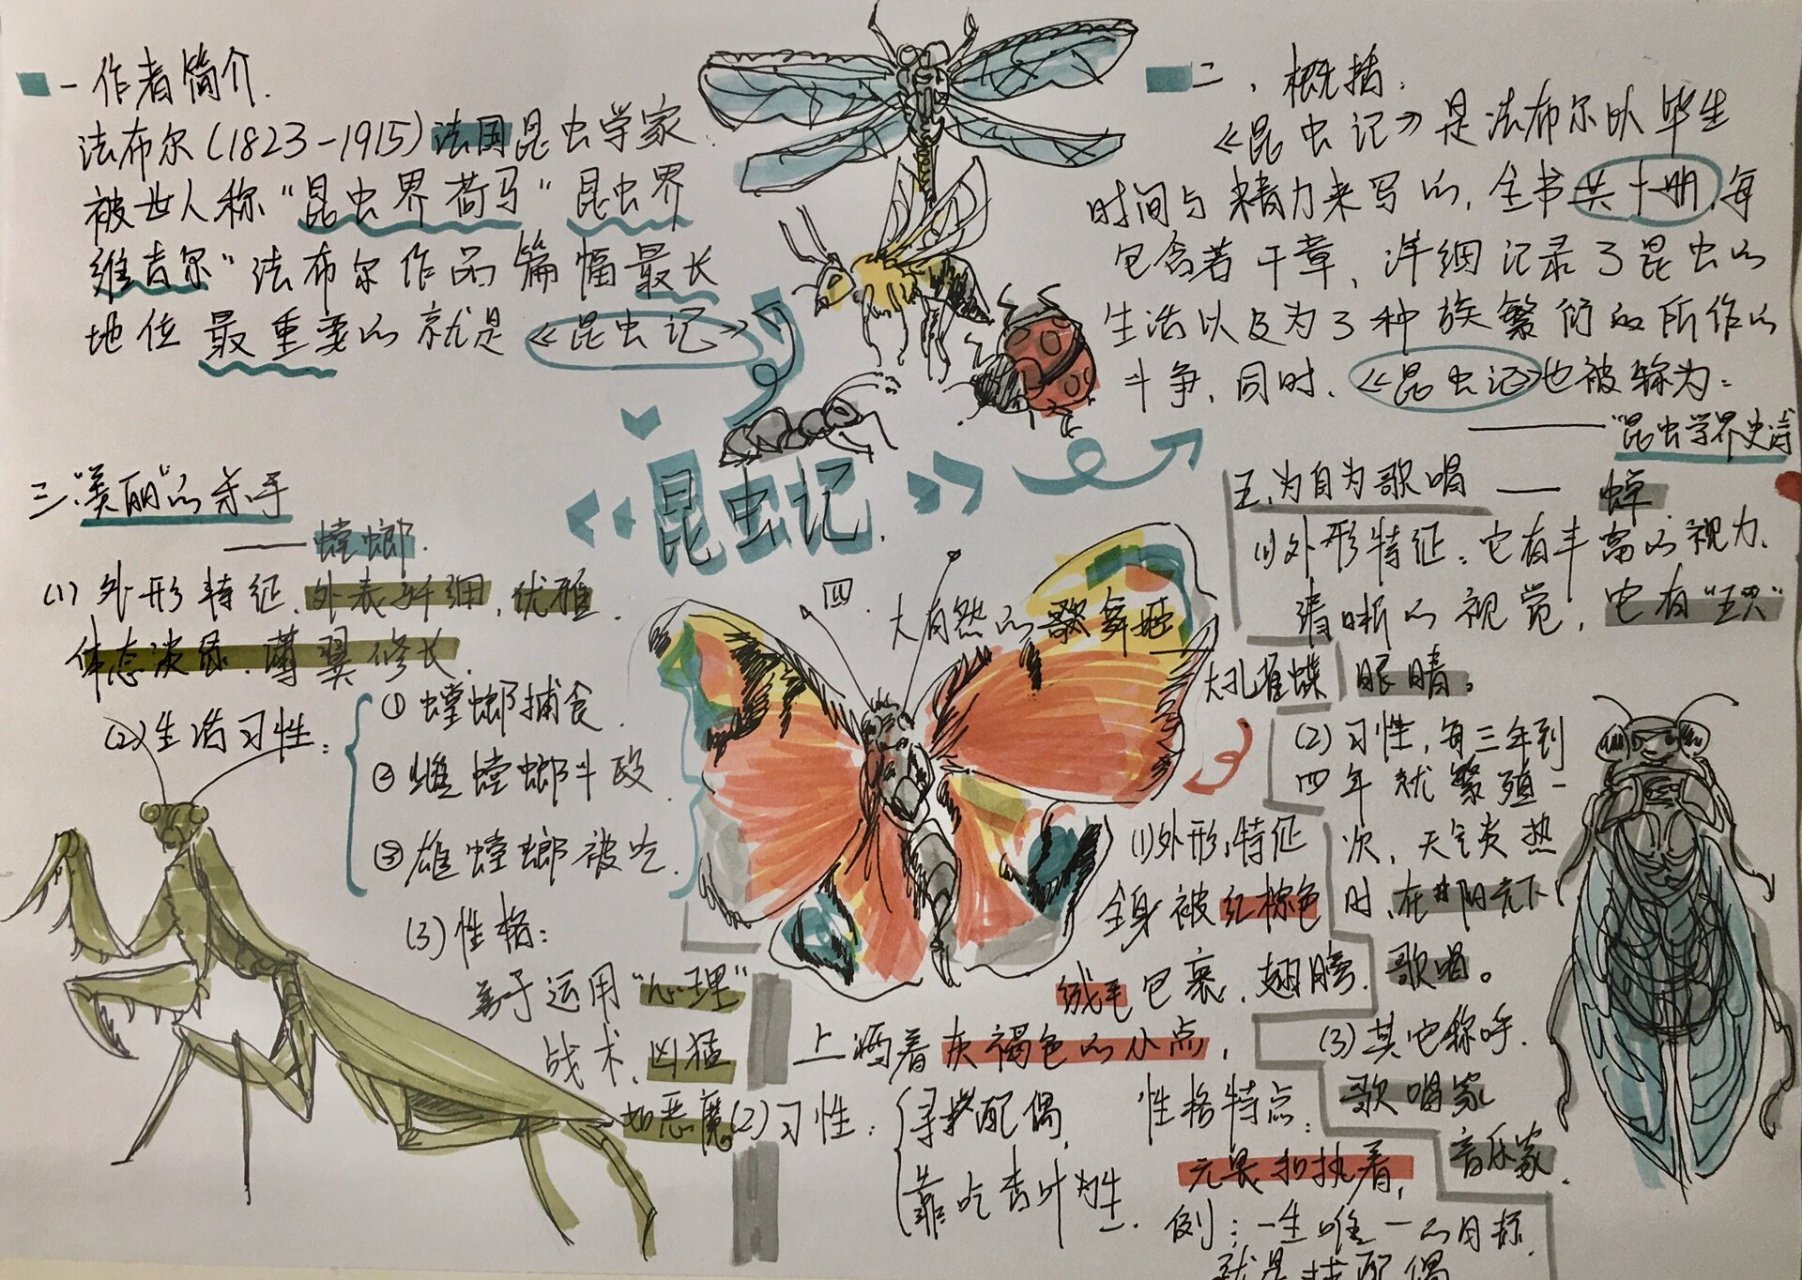 一 作者简介.
法布尔(1823-1915)法国昆虫学家.
被世人称“昆虫界荷马”昆虫界
维吉尔”法布尔作品篇幅最长
地位最重要的就是《昆虫记》
二、概括:
《昆虫记》是法布尔以毕生
时间与精力来写的,全书共十册,每
包含若干章,详细记录了昆虫的
生活以及为了种族繁衍的所作的
斗争,同时,《昆虫记》也被称为:
——“昆虫学界史诗
《昆虫记》
三.“美丽”的杀手
——螳螂.
(1)外形特征.外表纤细,优雅.
体态淡绿.薄翼修长.
(2)生活习性:
①螳螂捕食.
②雌螳螂斗殴
③雄螳螂被吃.
(3)性格:
善于运用“心理”
战术,凶猛
如恶魔
四.大自然的歌舞姬——
大孔雀蝶
(1)外形特征
全身被红棕色
绒毛包裹,翅膀
上洒着灰褐色的小点,
(2)习性:
寻找配偶,
靠吃杏叶为生.
性格特点:
无畏和执着,
例:一生唯一的目标
就是找配偶
五、为自为歌唱——蝉
(1)外形特征:它有丰富的视力、
清晰的视觉,它有“五只”
眼睛。
(2)习性,每三年到
四年就繁殖一
次,天气炎热
时,在阳光下
歌唱。
(3)其它称呼.
歌唱家
音乐家.